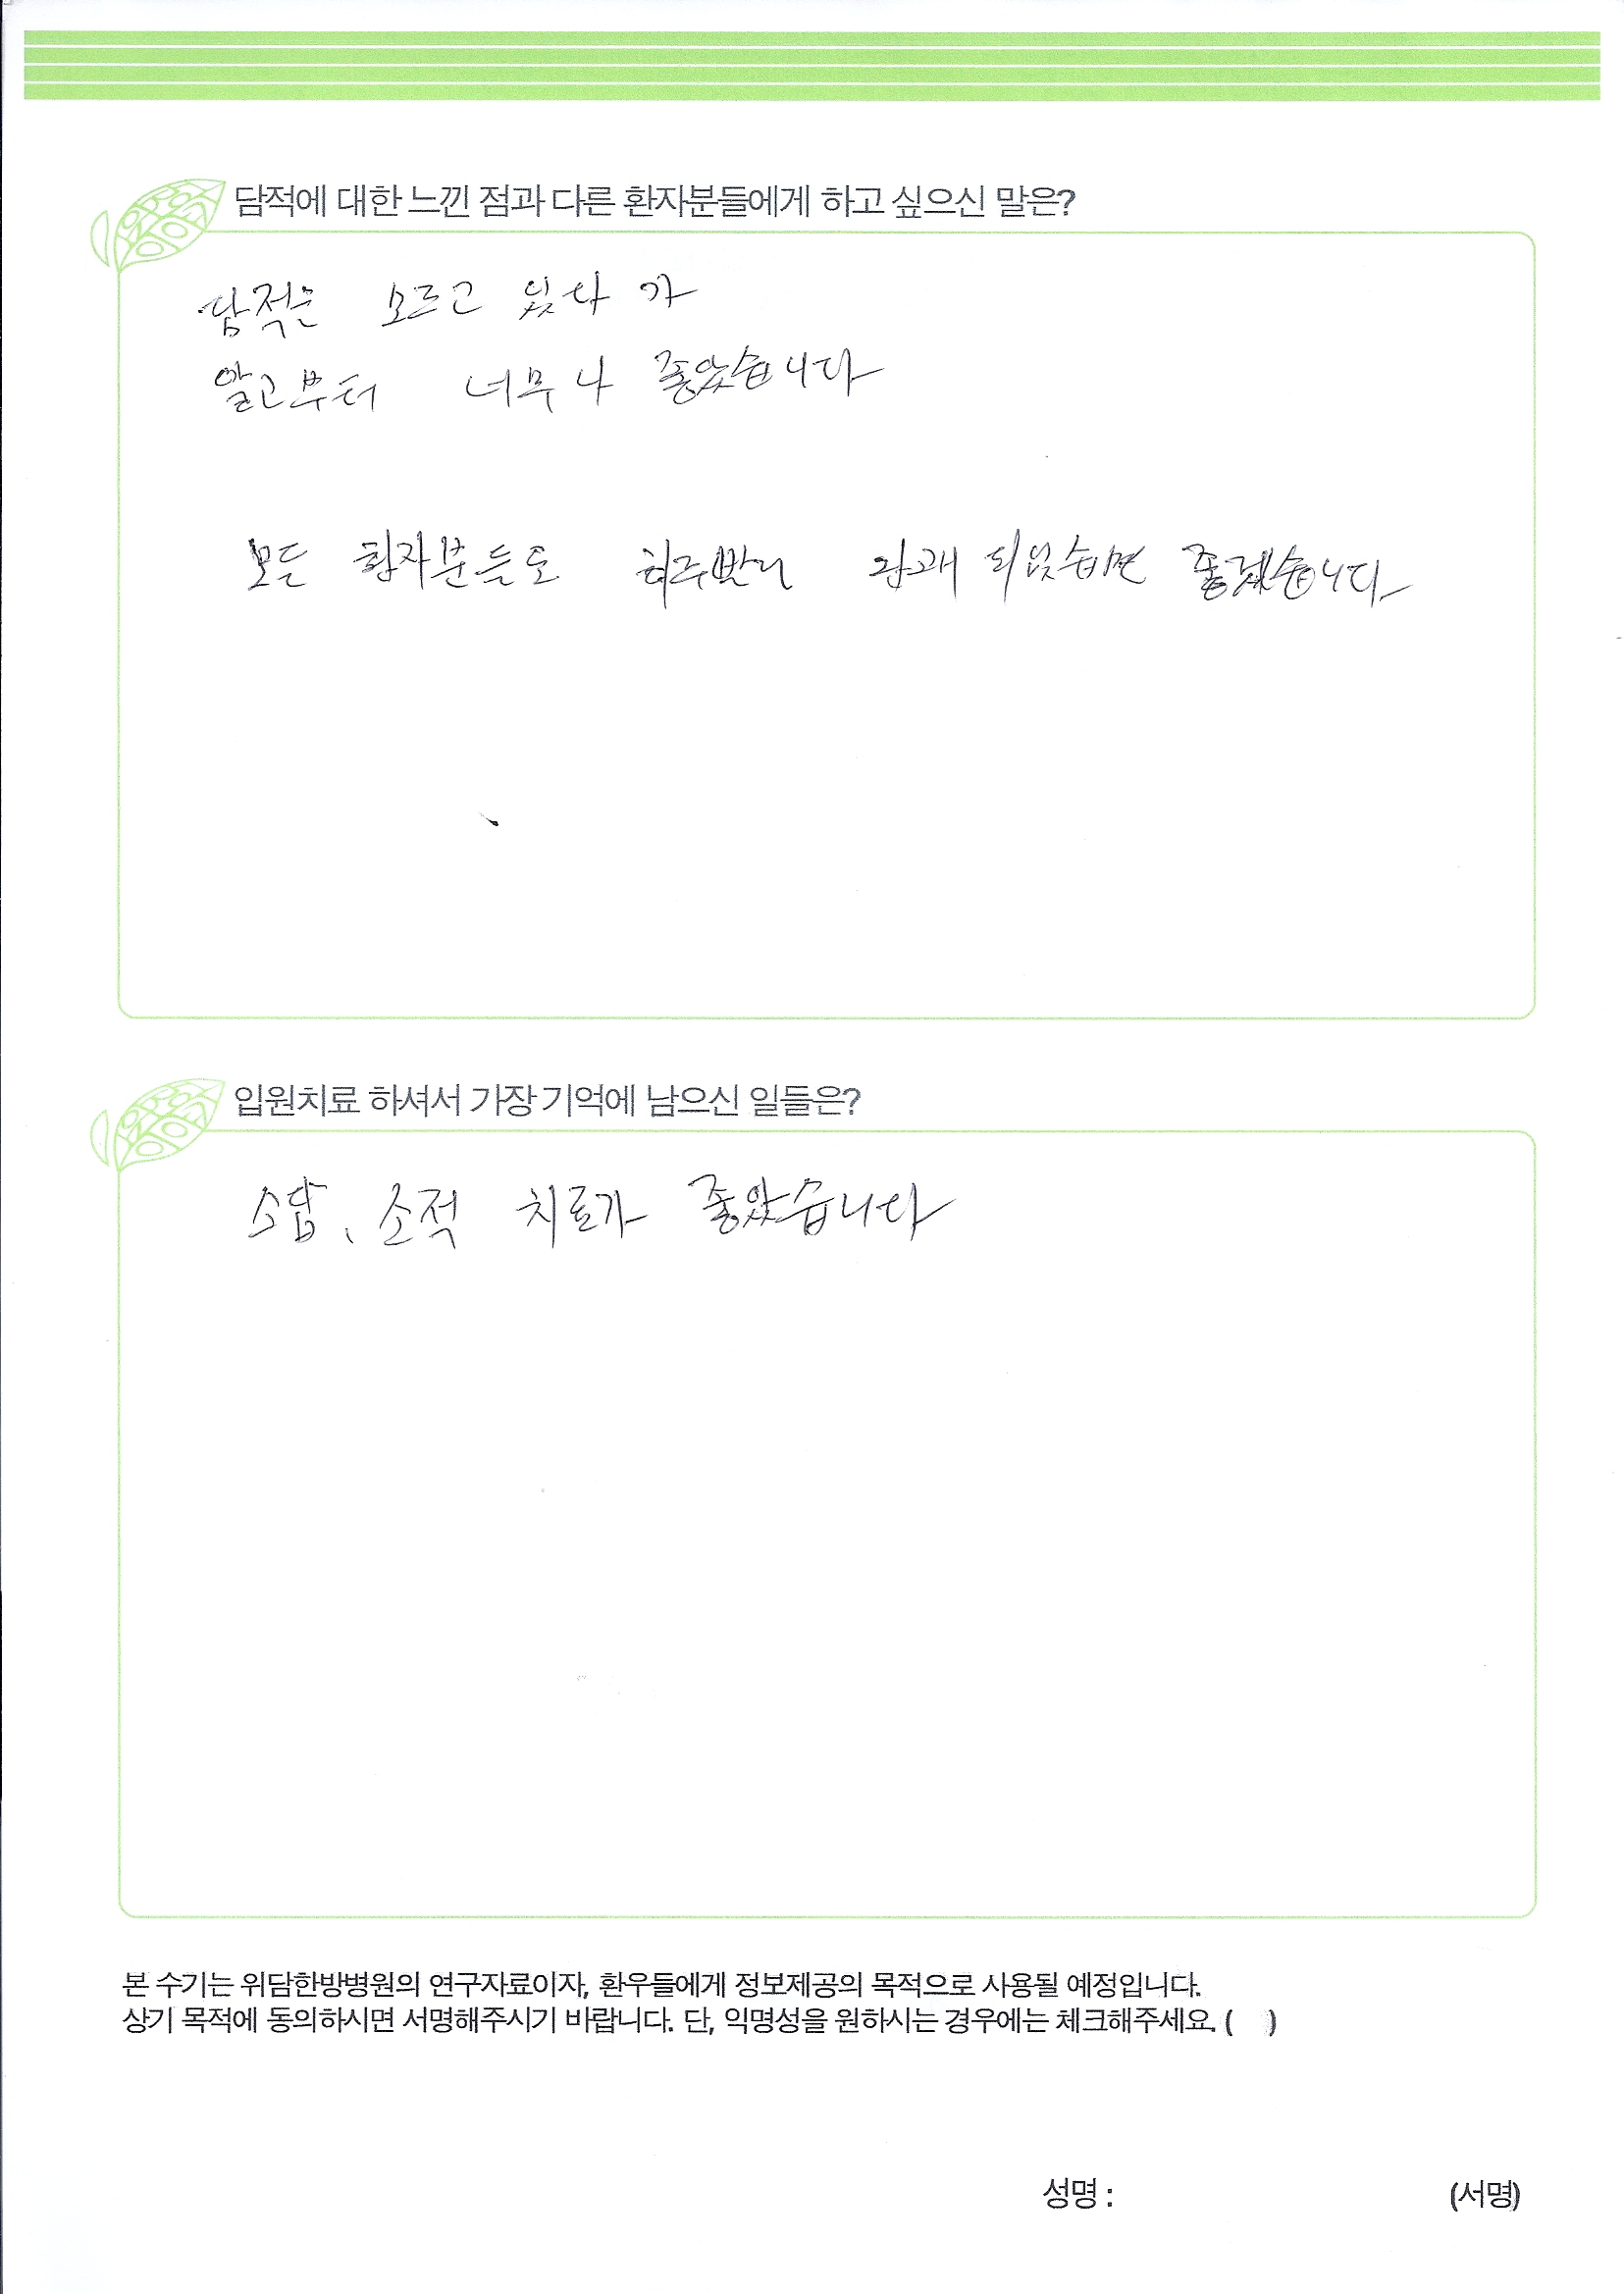 담적에 대한 느낀 점과 다른 환자분들에게 하고 싶으신 말은?
담적은 모르고 있다 가
알고부터 너무나 좋았습니다
모든 환자분들도 되었습면 좋겠습니다
입원치료 하셔서 가장 기억에 남으신 일들은?
소적 치료가 좋았습니다
본 수기는 위담한방병원의 연구자료이자, 환우들에게 정보제공의 목적으로 사용될 예정입니다.
상기 목적에 동의하시면 서명해주시기 바랍니다. 단, 익명성을 원하시는 경우에는 체크해주세요. ( )
성명 : (서명)